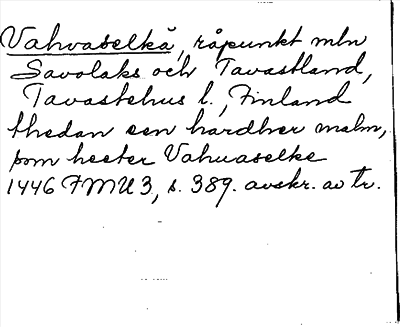 Vahvaselkä, råpunkt mln
Savolaks och Tavastland,
Tavastehus l., Finland
thedan een hardher malm,
som heeter Vahvaselke
1446 FMU 3, s. 389. avskr. av tr.